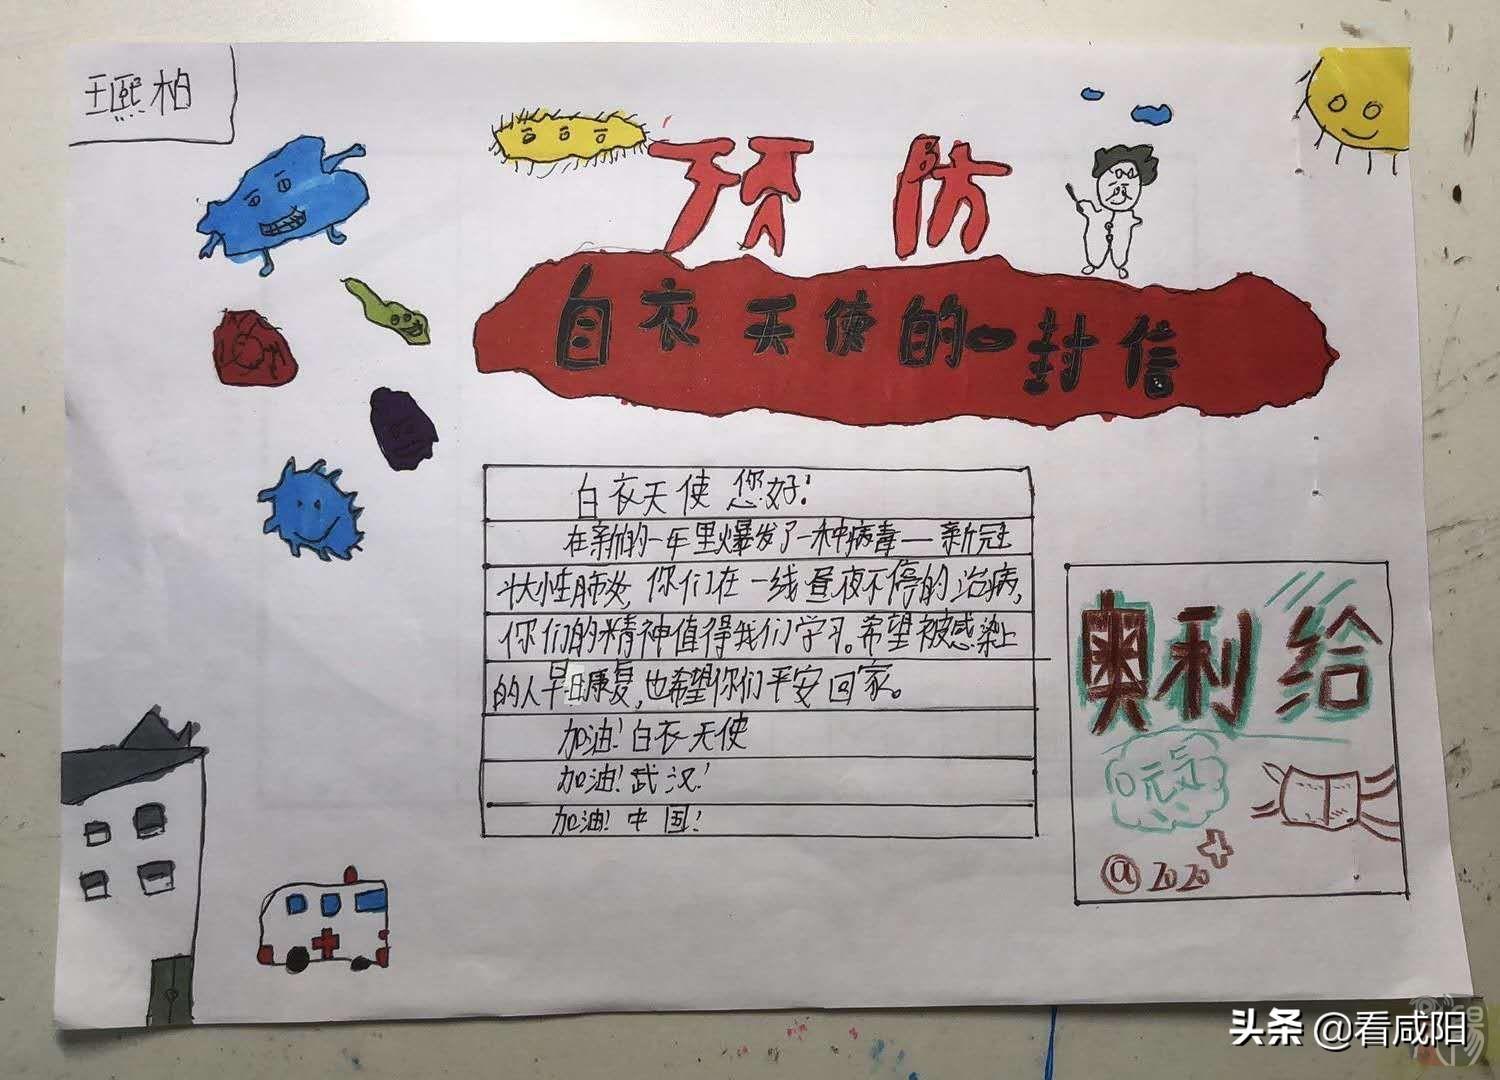 王熙柏
预防
白衣天使的一封信
白衣天使 您好!
在新的一年里爆发了一种病毒—新冠
状性肺炎,你们在一线昼夜不停的治病,
你们的精神值得我们学习。希望被感染上
的人早日康复,也希望你们平安回家。
加油!白衣天使
加油!武汉!
加油!中国!
奥利给
口元气
@2020+
头条 @看咸阳